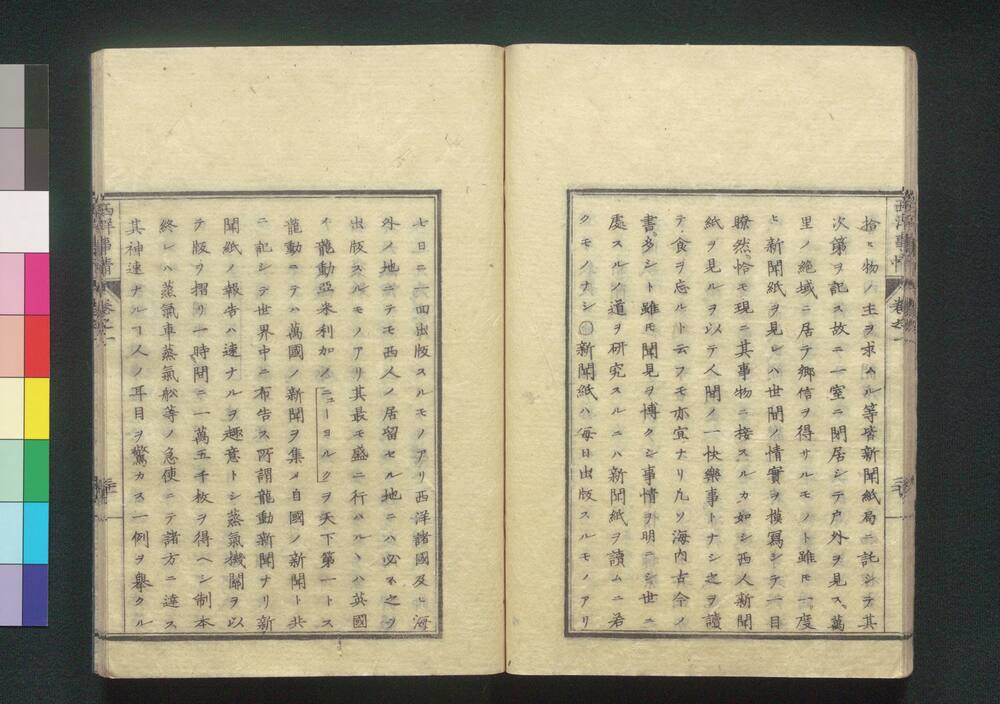 拾ヒ物ノ主ヲ求ムル等皆新聞紙局ニ託シテ其
次第ヲ記ス故ニ一室ニ閉居シテ戸外ヲ見ス萬
里ノ絶域ニ居テ郷信ヲ得サルモノト雖モ一度
ヒ新聞紙ヲ見レハ世間ノ情實ヲ摸冩シテ一目
瞭然恰モ現ニ其事物ニ接スルカ如シ西人新聞
紙ヲ見ルヲ以テ人間ノ一快樂事トナシ之ヲ讀
テ食ヲ忘ルト云フモ亦宜ナリ凡ソ海内古今ノ
書多シト雖モ聞見ヲ博クシ事情ヲ明ニシ世ニ
處スルノ道ヲ研究スルニハ新聞紙ヲ讀ムニ若
クモノナシ〇新聞紙ハ毎日出版スルモノアリ
西洋事情
卷之一
七日ニ一四出版スルモノアリ西洋諸國及ヒ海
外ノ地ニテモ西人ノ居留セル地ニハ必ス之ヲ
出版スルモノアリ其最モ盛ニ行ハルヽハ英國
ノ龍動亞米利加ノニューヨルクヲ天下第一トス
龍動ニテハ萬國ノ新聞ヲ集メ自國ノ新聞ト共
ニ記シテ世界中ニ布告ス所謂龍動新聞ナリ新
聞紙ノ報告ハ速ナルヲ趣意トシ蒸氣機關ヲ以
テ版ヲ摺リ一時間ニ一萬五千枚ヲ得ヘシ制本
終レハ蒸氣車蒸氣舩等ノ急便ニテ諸方ニ達ス
其神速ナルヿ人ノ耳目ヲ驚カス一例ヲ擧クル
西洋事情
卷之一